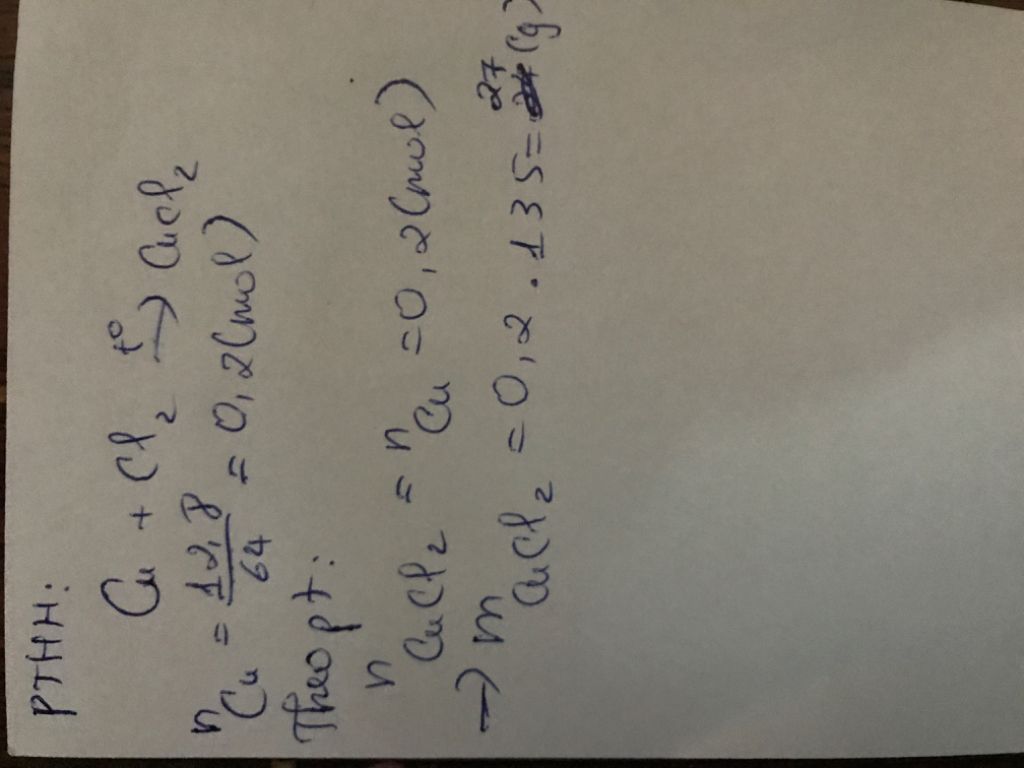 PTHH:
Cu + Cl₂ —t⁰→ CuCl₂
n Cu = 12,8/64 = 0,2(mol)
Theo pt:
n CuCl₂ = n Cu = 0,2(mol)
→ m CuCl₂ = 0,2 . 135 = 27 (g)